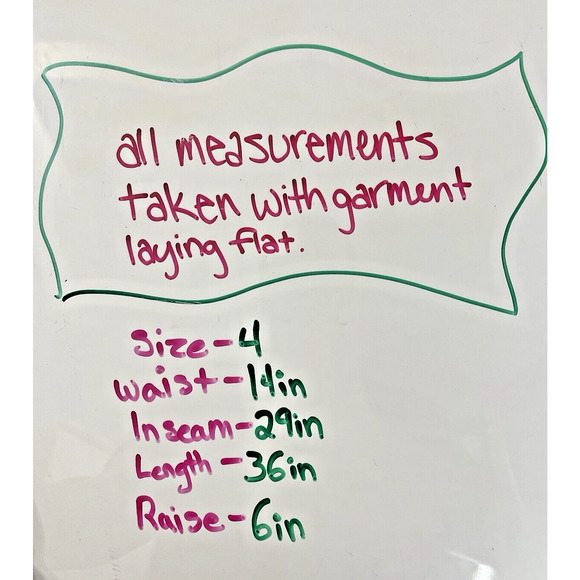 all measurements
taken with garment
laying flat.
Size-4
waist-14in
Inseam-29in
Length-36in
Raise-6in